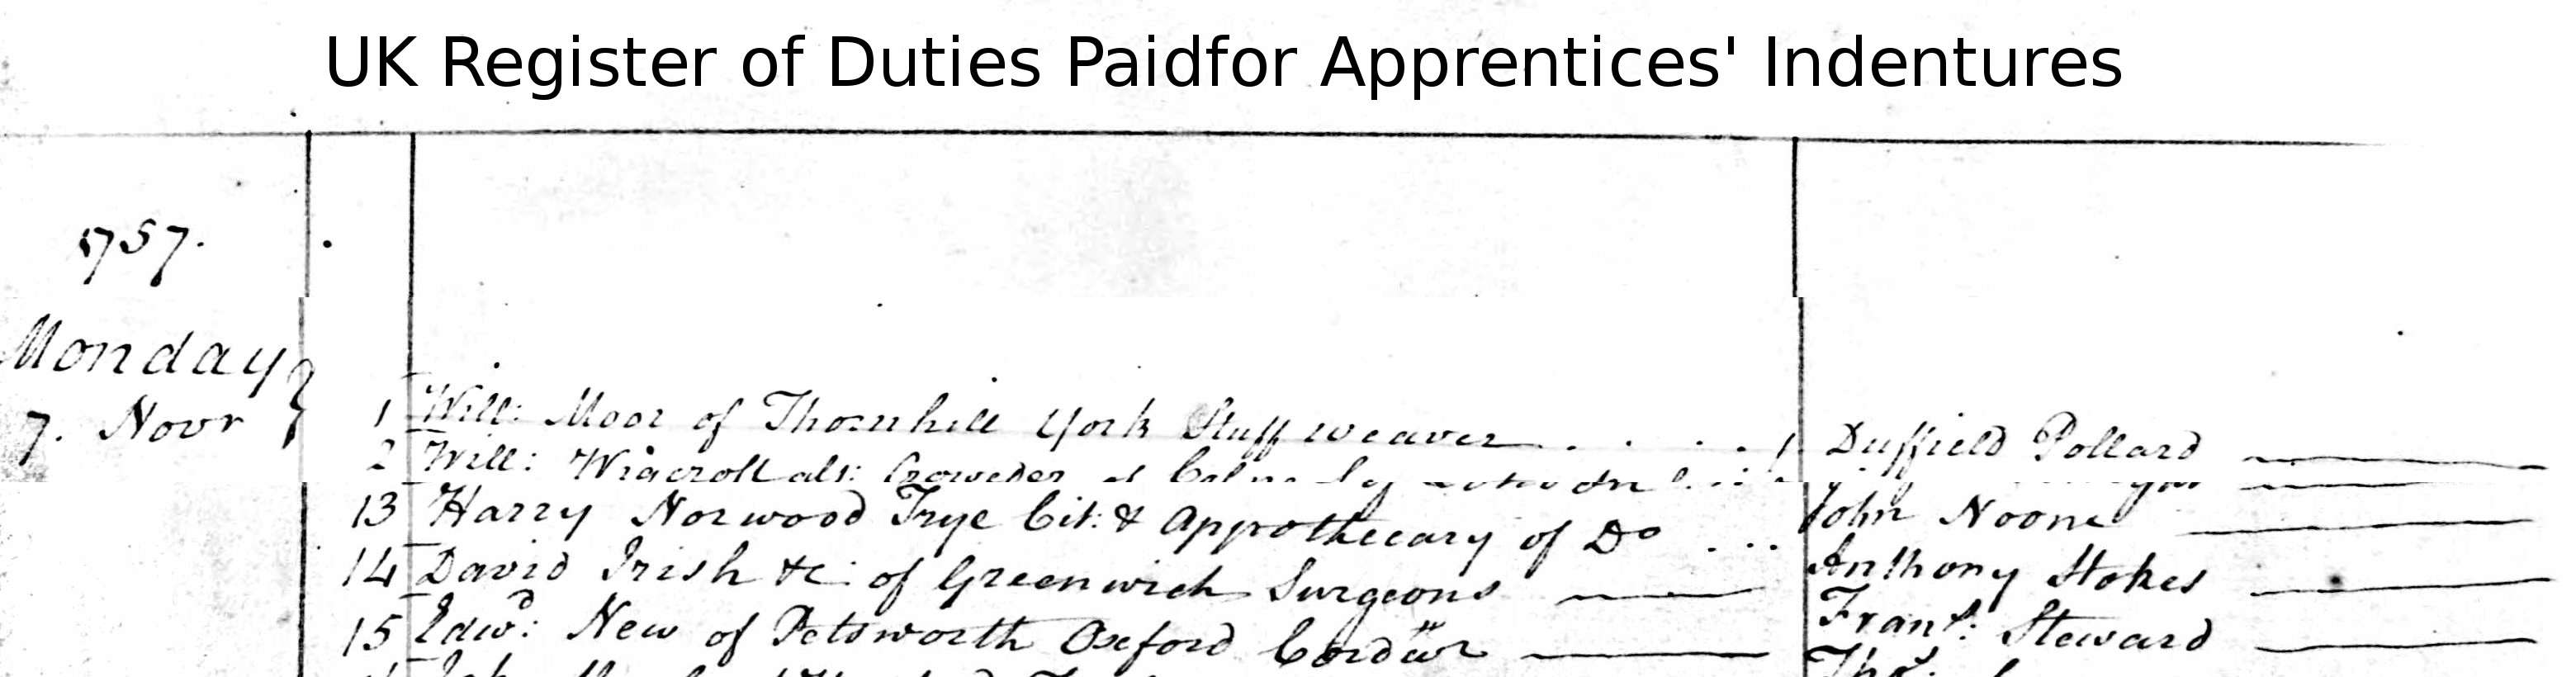 UK Register of Duties Paidfor Apprentices' Indentures
1757.
Monday
7. Novr
1 Will: Moor of Thornhill York Stuff weaver Duffield Pollard
2 Will: Wigcroft als: Crowder of
13 Harry Norwood Frye Cit: & Appothecary of Do John Noone
14 David Irish &c: of Greenwich Surgeons Anthony Stokes
15 Edwd: New of Petsworth Oxford Cordwr Frans: Steward
Thos: